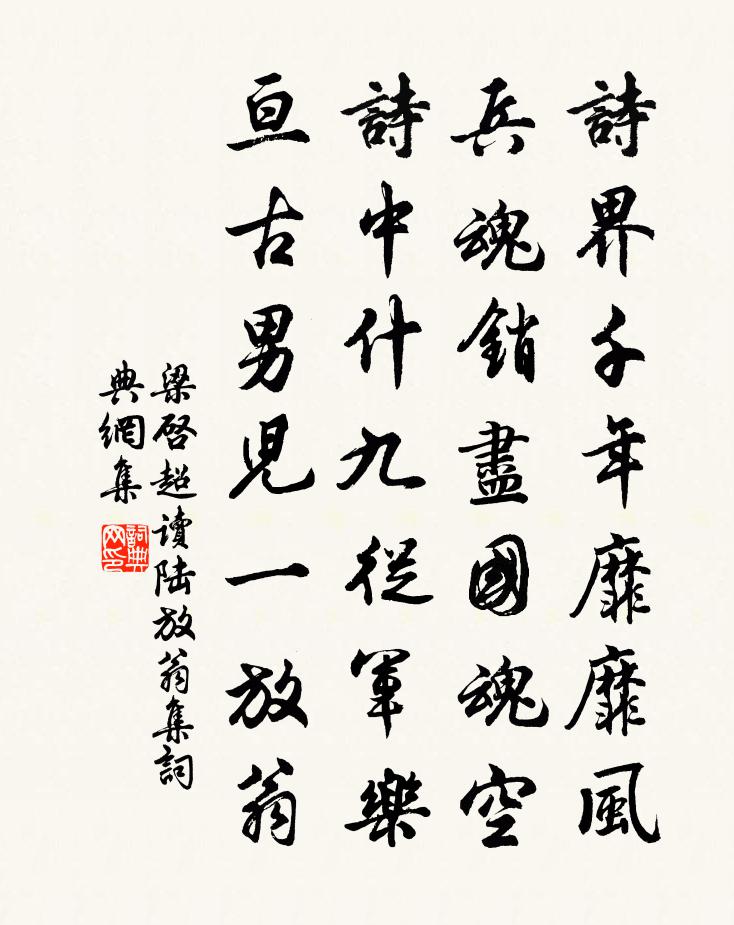 詩界千年靡靡風
兵魂銷盡國魂空
詩中什九從軍樂
亘古男兒一放翁
梁啓超讀陸放翁集詞
典網集
詞典
网印